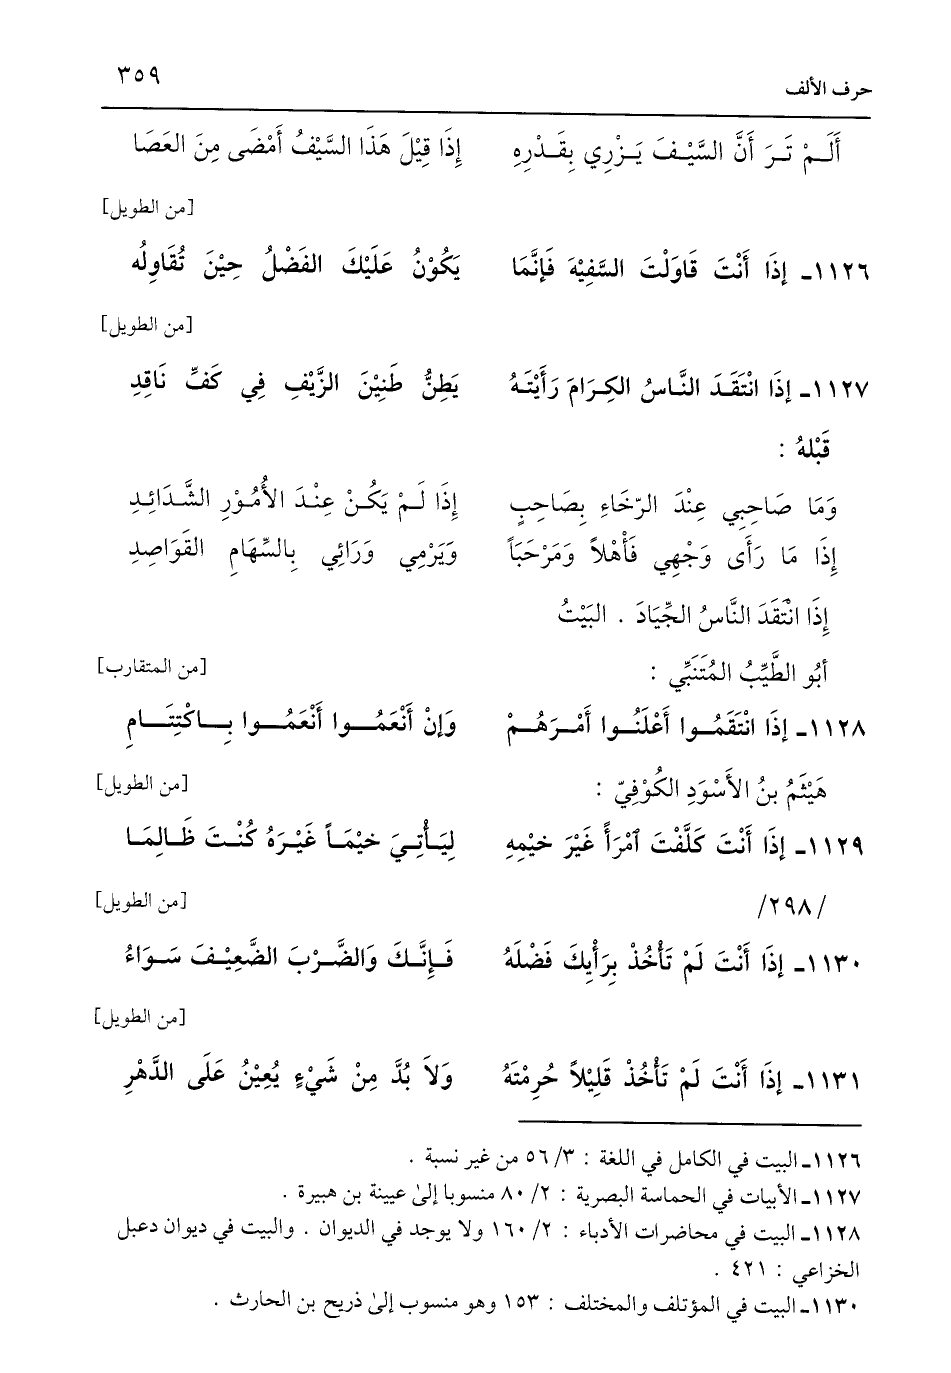 حرف الألف ٣٥٩
أَلَمْ تَرَ أَنَّ السَّيْفَ يَزْرِي بِقَدْرِهِ إِذَا قِيْلَ هَذَا السَّيْفُ أَمْضَى مِنَ العَصَا
[من الطويل]
١١٢٦ـ إِذَا أَنْتَ قَاوَلْتَ السَّفِيْهَ فَإِنَّمَا يَكُوْنُ عَلَيْكَ الفَضْلُ حِيْنَ تُقَاوِلُه
[من الطويل]
١١٢٧ـ إِذَا انْتَقَدَ النَّاسُ الكِرَامَ رَأَيْتَهُ يَطِنُّ طَنِيْنَ الزَّيْفِ فِي كَفِّ نَاقِدِ
قَبْلهُ :
وَمَا صَاحِبِي عِنْدَ الرّخَاءِ بِصَاحِبٍ إِذَا لَمْ يَكُنْ عِنْدَ الأُمُوْرِ الشَّدَائِدِ
إِذَا مَا رَأَى وَجْهِي فَأَهْلاً وَمَرْحَبَاً وَيَرْمِي وَرَائِي بِالسِّهَامِ القَوَاصِدِ
إِذَا انْتَقَدَ النَّاسُ الجِّيَادَ . البَيْتُ
أَبُو الطَّيِّبُ المُتَنَبِّي : [من المتقارب]
١١٢٨ـ إِذَا انْتَقَمُوا أَعْلَنُوا أَمْرَهُمْ وَإِنْ أَنْعَمُوا أَنْعَمُوا بِاكْتِتَامِ
هَيْثَمُ بنُ الأَسْوَدِ الكُوْفِيّ : [من الطويل]
١١٢٩ـ إِذَا أَنْتَ كَلَّفْتَ ٱمْرَأً غَيْرَ خيْمِهِ لِيَأْتِيَ خيْمَاً غَيْرَهُ كُنْتَ ظَالِمَا
/٢٩٨/ [من الطويل]
١١٣٠ـ إِذَا أَنْتَ لَمْ تَأْخُذْ بِرَأْيِكَ فَضْلَهُ فَإِنَّكَ وَالضَّرْبَ الضَّعِيْفَ سَوَاءُ
[من الطويل]
١١٣١ـ إِذَا أَنْتَ لَمْ تَأْخُذْ قَلِيْلاً حُرِمْتَهُ وَلاَ بُدَّ مِنْ شَيْءٍ يُعِيْنُ عَلَى الدَّهْرِ
١١٢٦ـ البيت في الكامل في اللغة : ٣/ ٥٦ من غير نسبة .
١١٢٧ـ الأبيات في الحماسة البصرية : ٢/ ٨٠ منسوبا إلىٰ عيينة بن هبيرة .
١١٢٨ـ البيت في محاضرات الأدباء : ٢/ ١٦٠ ولا يوجد في الديوان . والبيت في ديوان دعبل
الخزاعي : ٤٢١ .
١١٣٠ـ البيت في المؤتلف والمختلف : ١٥٣ وهو منسوب إلىٰ ذريح بن الحارث .